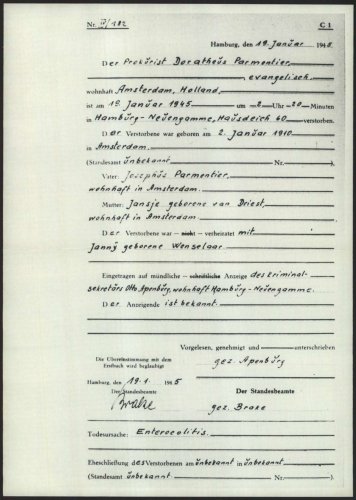 Nr. IV/182 C 1
Hamburg, den 19. Januar 1945.
Der Prokurist Doratheus Parmentier,
evangelisch
wohnhaft Amsterdam, Holland
ist am 19. Januar 1945 um 2 Uhr 20 Minuten
in Hamburg-Neuengamme, Hausdeich 60 verstorben.
Der Verstorbene war geboren am 2. Januar 1910
in Amsterdam.
(Standesamt unbekannt Nr. ).
Vater: Josephus Parmentier,
wohnhaft in Amsterdam.
Mutter: Jansje geborene van Driest,
wohnhaft in Amsterdam.
Der Verstorbene war – nicht – verheiratet mit
Janny geborene Wenselaar.
Eingetragen auf mündliche – schriftliche Anzeige des Kriminal-
sekretärs Otto Apenburg, wohnhaft Hamburg-Neuengamme.
Der Anzeigende ist bekannt.
Vorgelesen, genehmigt und unterschrieben
gez. Apenburg
Die Übereinstimmung mit dem
Erstbuch wird beglaubigt
Hamburg, den 19.1. 1945
Der Standesbeamte Der Standesbeamte
Brake gez. Brake
Todesursache: Enterocolitis.
Eheschließung des Verstorbenen am unbekannt in unbekannt
(Standesamt unbekannt Nr. ).